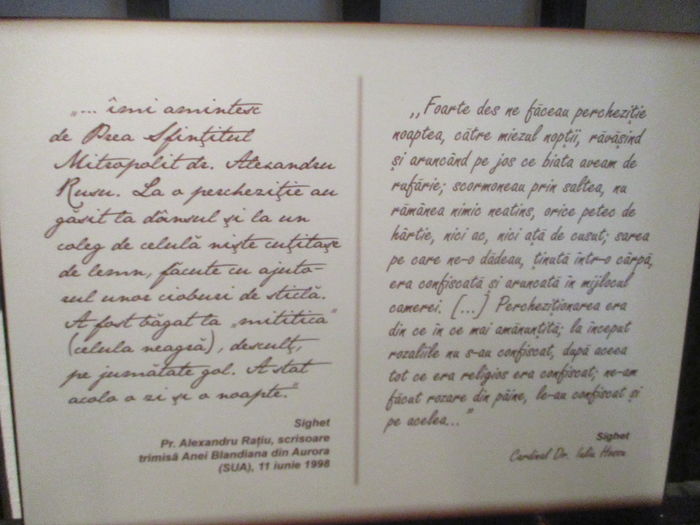 „... îmi amintesc
de Prea Sfinţitul
Mitropolit dr. Alexandru
Rusu. La o percheziţie au
găsit la dânsul şi la un
coleg de celulă nişte cuţitaşe
de lemn, făcute cu ajuto-
rul unor cioburi de sticlă.
A fost băgat la „mititica"
(celula neagră), desculţ,
pe jumătate gol. A stat
acolo o zi şi o noapte."
Sighet
Pr. Alexandru Raţiu, scrisoare
trimisă Anei Blandiana din Aurora
(SUA), 11 iunie 1998
,,Foarte des ne făceau percheziţie
noaptea, către miezul nopţii, răvăşind
şi aruncând pe jos ce biata aveam de
rufărie; scormoneau prin saltea, nu
rămânea nimic neatins, orice petec de
hârtie, nici ac, nici aţă de cusut; sarea
pe care ne-o dădeau, ţinută într-o cârpă,
era confiscată şi aruncată în mijlocul
camerei. [...] Percheziţionarea era
din ce în ce mai amănunţită; la început
rozaliile nu s-au confiscat, după aceea
tot ce era religios era confiscat; ne-am
făcut rozare din pâine, le-au confiscat şi
pe acelea..."
Sighet
Cardinal Dr. Iuliu Hossu